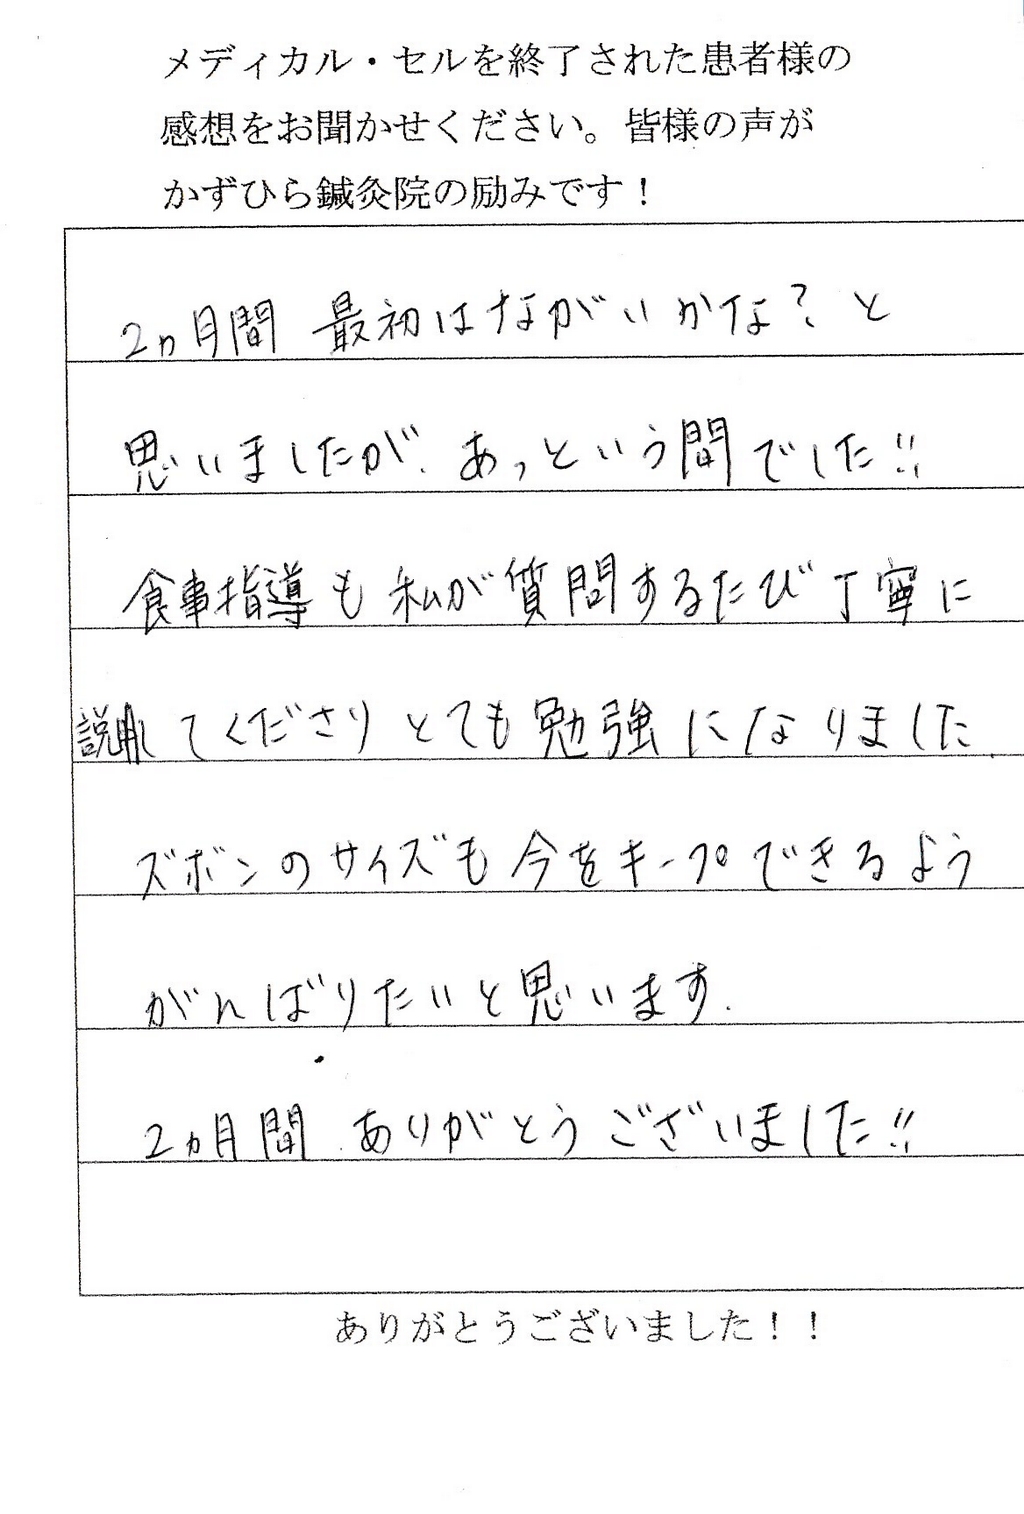 メディカル・セルを終了された患者様の
感想をお聞かせください。皆様の声が
かずひら鍼灸院の励みです！
2ヵ月間 最初はながいかな？と
思いましたが、あっという間でした!!
食事指導も私が質問するたび丁寧に
説明してくださりとても勉強になりました。
ズボンのサイズも今をキープできるよう
がんばりたいと思います。
2ヵ月間、ありがとうございました!!
ありがとうございました！！